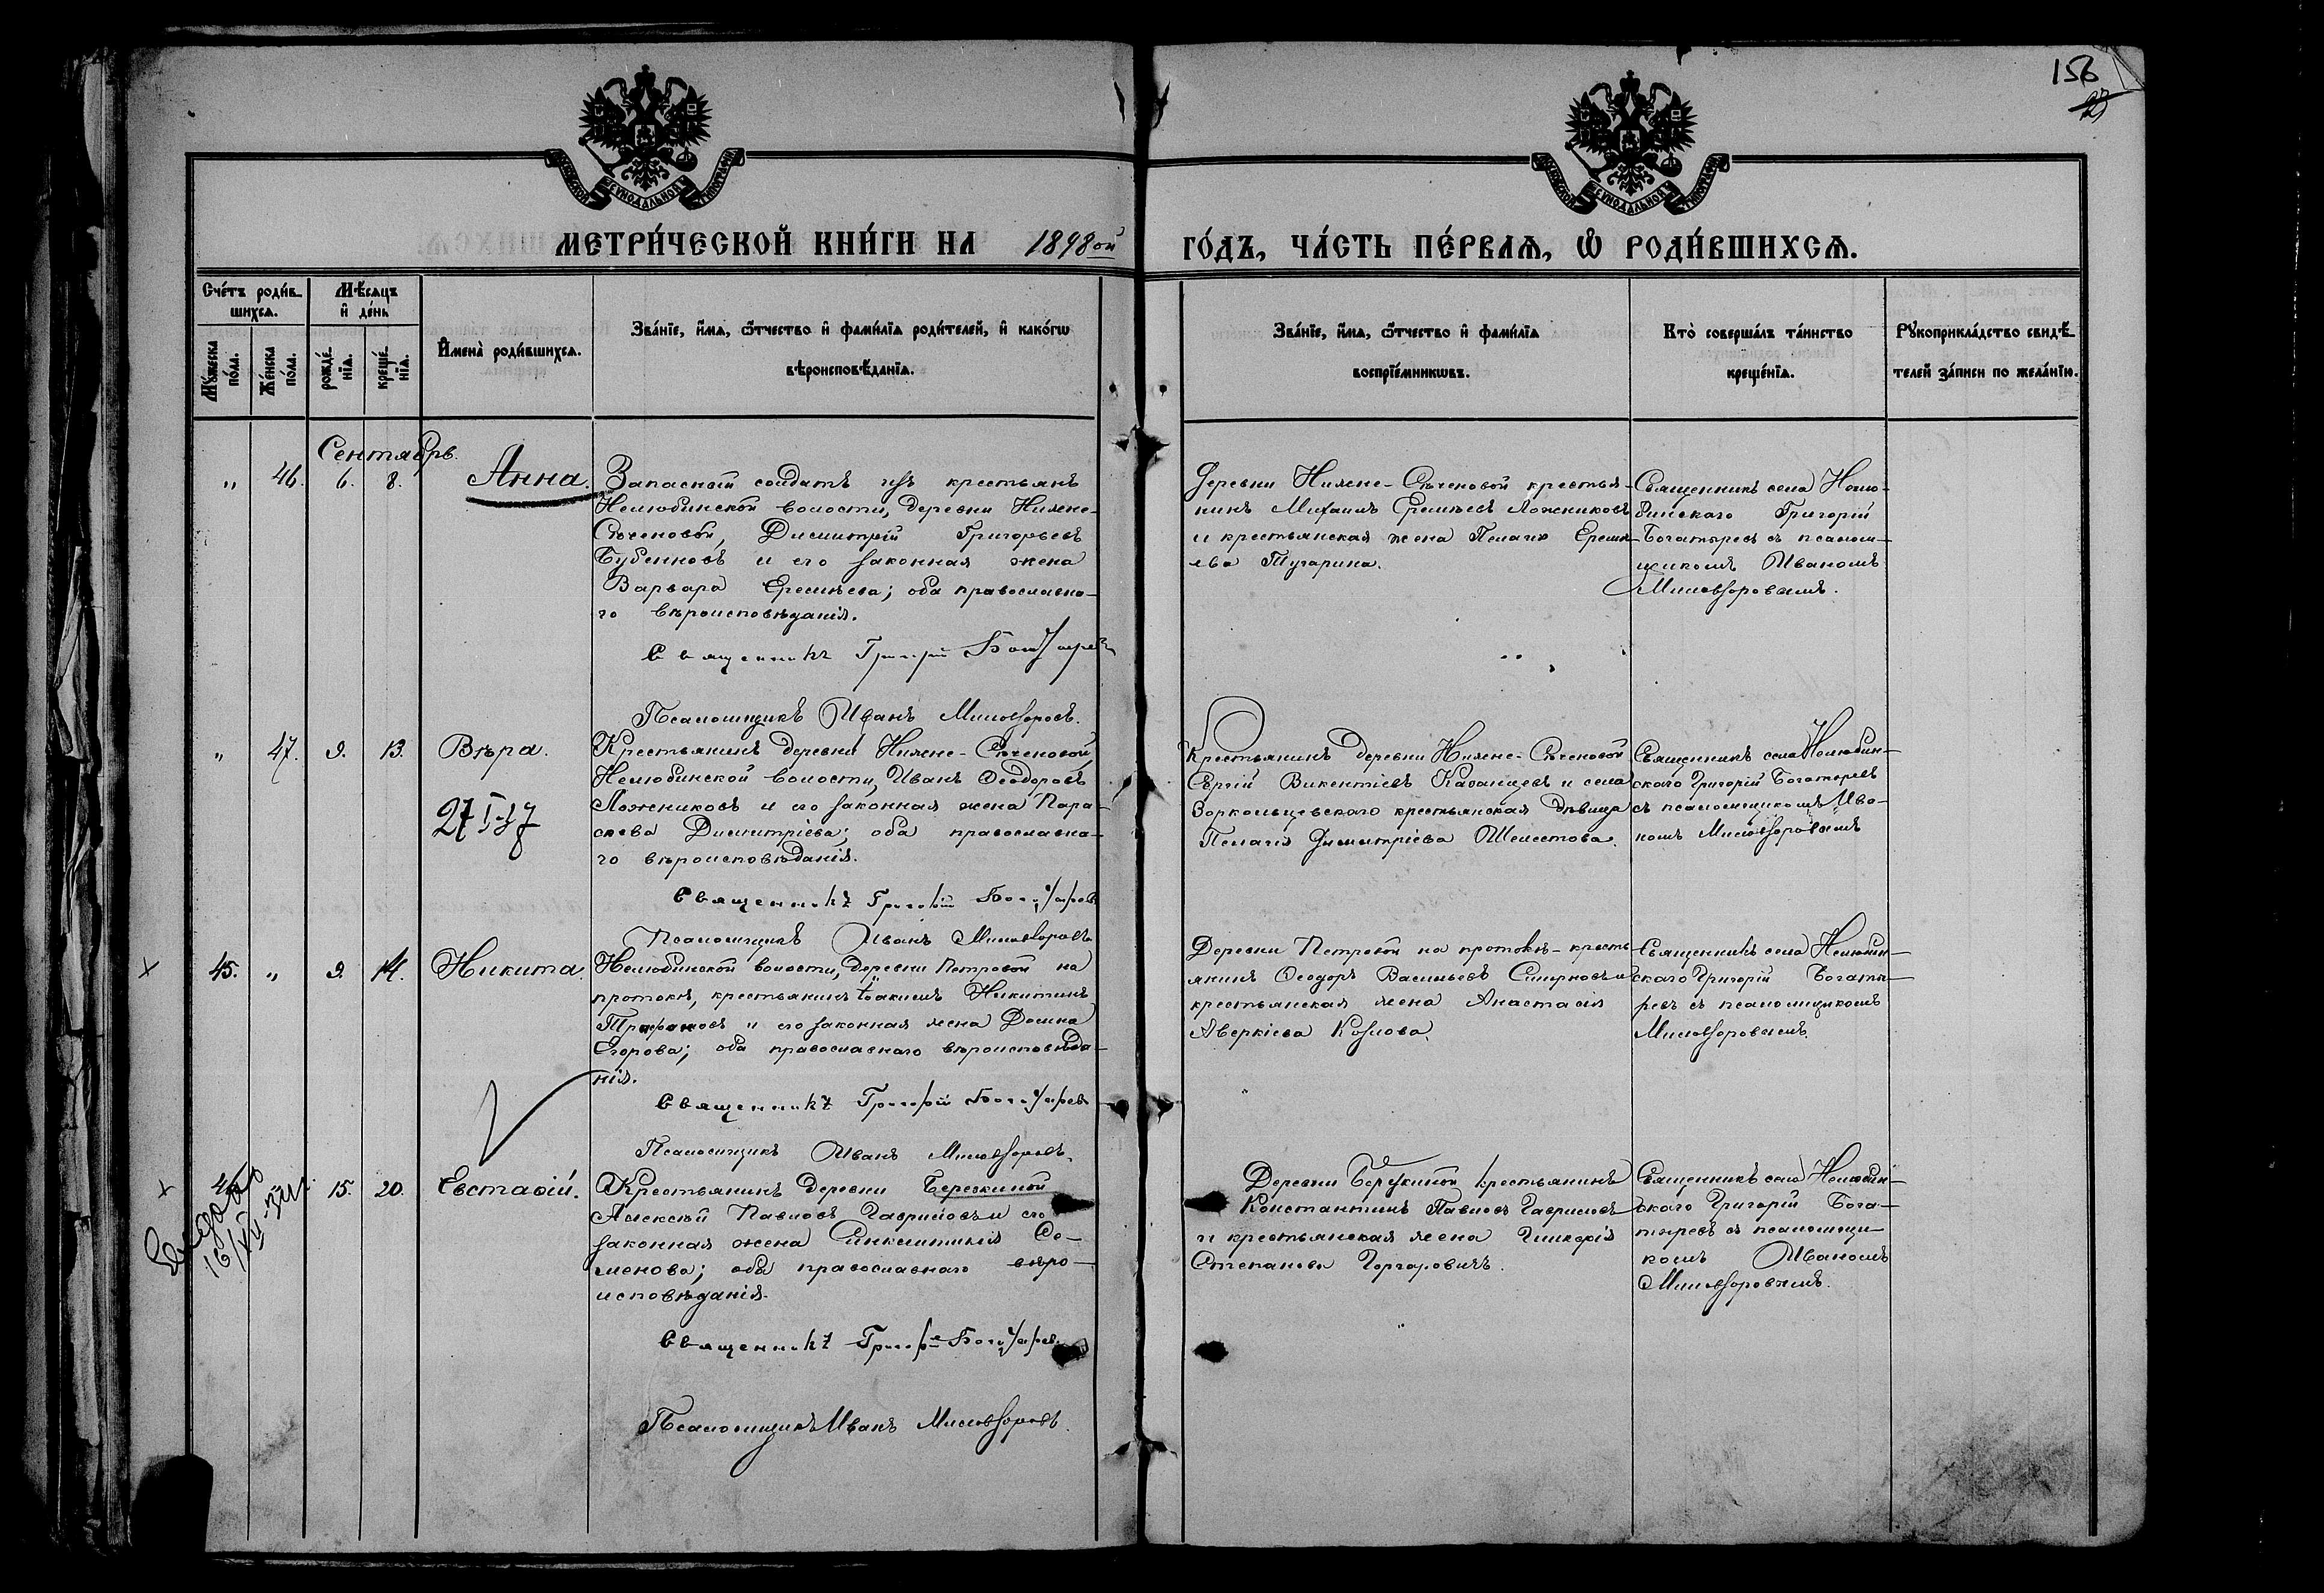 156
МОСКОВСКОЙ СѴНОДАЛЬНОЙ ТИПОГРАФІИ
МОСКОВСКОЙ СѴНОДАЛЬНОЙ ТИПОГРАФІИ
МЕТРИ́ЧЕСКОЙ КНИ́ГИ НА 1898ой ГО́ДЪ, ЧА́СТЬ ПЕ́РВАѦ, Ѽ РОДИ́ВШИХСѦ.
Сче́тъ роди́в-
шихсѧ.
Мꙋ́жеска
по́ла.
Же́нска
по́ла.
Мѣ́сѧцъ
и҆ де́нь
рожде́-
нїѧ.
креще́-
нїѧ.
И҆мена̀ роди́вшихсѧ.
Зва́нїе, и҆́мѧ, ѻ҆́тчество и҆ фами́лїѧ роди́телей, и҆ како́гѡ
вѣроисповѣ́данїѧ.
Зва́нїе, и҆́мѧ, ѻ҆́тчество и҆ фами́лїѧ
воспрїе́мникѡвъ.
Кто̀ соверша́лъ та́инство
креще́нїѧ.
Рꙋкоприкла́дство свидѣ́-
телей за́писи по жела́нїю.
Сентябрь.
„ 46. 6. 8. Анна.
Запасный солдатъ изъ крестьянъ
Нелюбинской волости, деревни Нижне-
Сѣченовой, Димитрій Григорьевъ
Бубенновъ и его законная жена
Варвара Еремѣева; оба православна-
го вѣроисповѣданія.
Священникъ Григорій Богатыревъ
Псаломщикъ Иванъ Миловзоровъ.
Деревни Нижне-Сѣченовой крестья-
нинъ Михаилъ Еремѣевъ Ложниковъ
и крестьянская жена Пелагія Еремѣ-
ева Тугарина.
Священникъ села Нелю-
бинскаго Григорій
Богатыревъ съ псалом-
щикомъ Иваномъ
Миловзоровымъ.
„ 47. 9. 13. Вѣра.
27 I-37
Крестьянинъ деревни Нижне-Сѣченовой,
Нелюбинской волости, Иванъ Ѳеодоровъ
Ложниковъ и его законная жена Пара-
скева Димитріева; оба православна-
го вѣроисповѣданія.
Священникъ Григорій Богатыревъ
Псаломщикъ Иванъ Миловзоровъ
Крестьянинъ деревни Нижне-Сѣченовой
Сергій Викентіевъ и села
Зоркольцевскаго крестьянская дѣвица
Пелагія Димитріева Шелестова.
Священникъ села Нелюбин-
скаго Григорій Богатыревъ
съ псаломщикомъ Ива-
номъ Миловзоровымъ
45. „ 9. 14. Никита.
Нелюбинской волости, деревни Петровой на
протокѣ, крестьянинъ Іоакимъ Никитинъ
Трифоновъ и его законная жена Домна
Егорова; оба православнаго вѣроисповѣда-
нія.
Священникъ Григорій Богатыревъ
Псаломщикъ Иванъ Миловзоровъ.
Деревни Петровой на протокѣ-кресть-
янинъ Ѳеодоръ Васильевъ Смирновъ и
крестьянская жена Анастасія
Аверкіева Козлова.
Священникъ села Нелюбин-
скаго Григорій Богаты-
ревъ съ псаломщикомъ
Миловзоровымъ.
15. 20. Евстафій.
16/VII
Крестьянинъ деревни Березкиной
Алексѣй Павловъ Гавриловъ и его
законная жена Синклитикія Се-
менова; оба православнаго вѣро-
исповѣданія.
Священникъ Григорій Богатыревъ
Псаломщикъ Иванъ Миловзоровъ.
Деревни Березкиной крестьянинъ
Константинъ Павловъ Гавриловъ
и крестьянская жена Гликерія
Степанова
Священникъ села Нелюбин-
скаго Григорій Бога-
тыревъ съ псаломщи-
комъ Иваномъ
Миловзоровымъ.